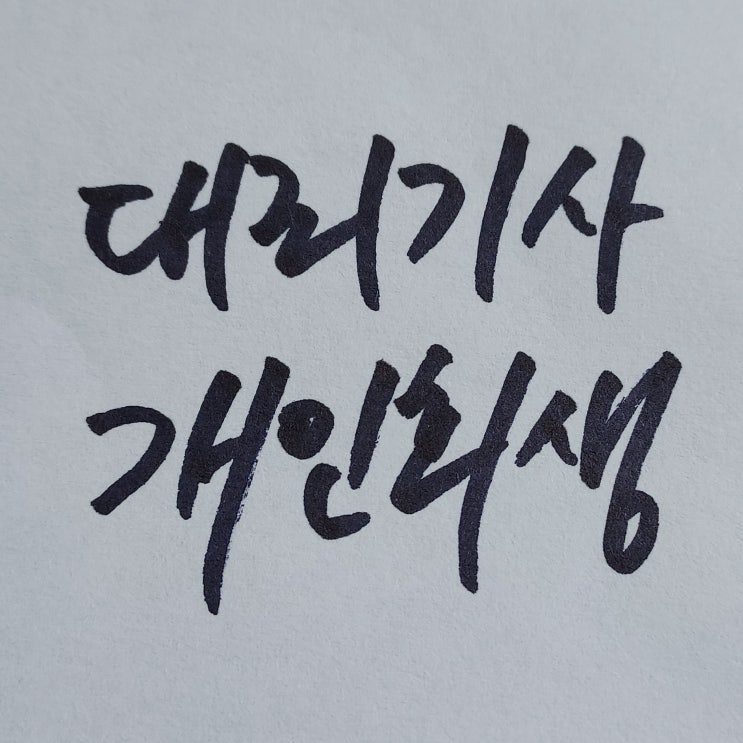 대리기사
개인회생